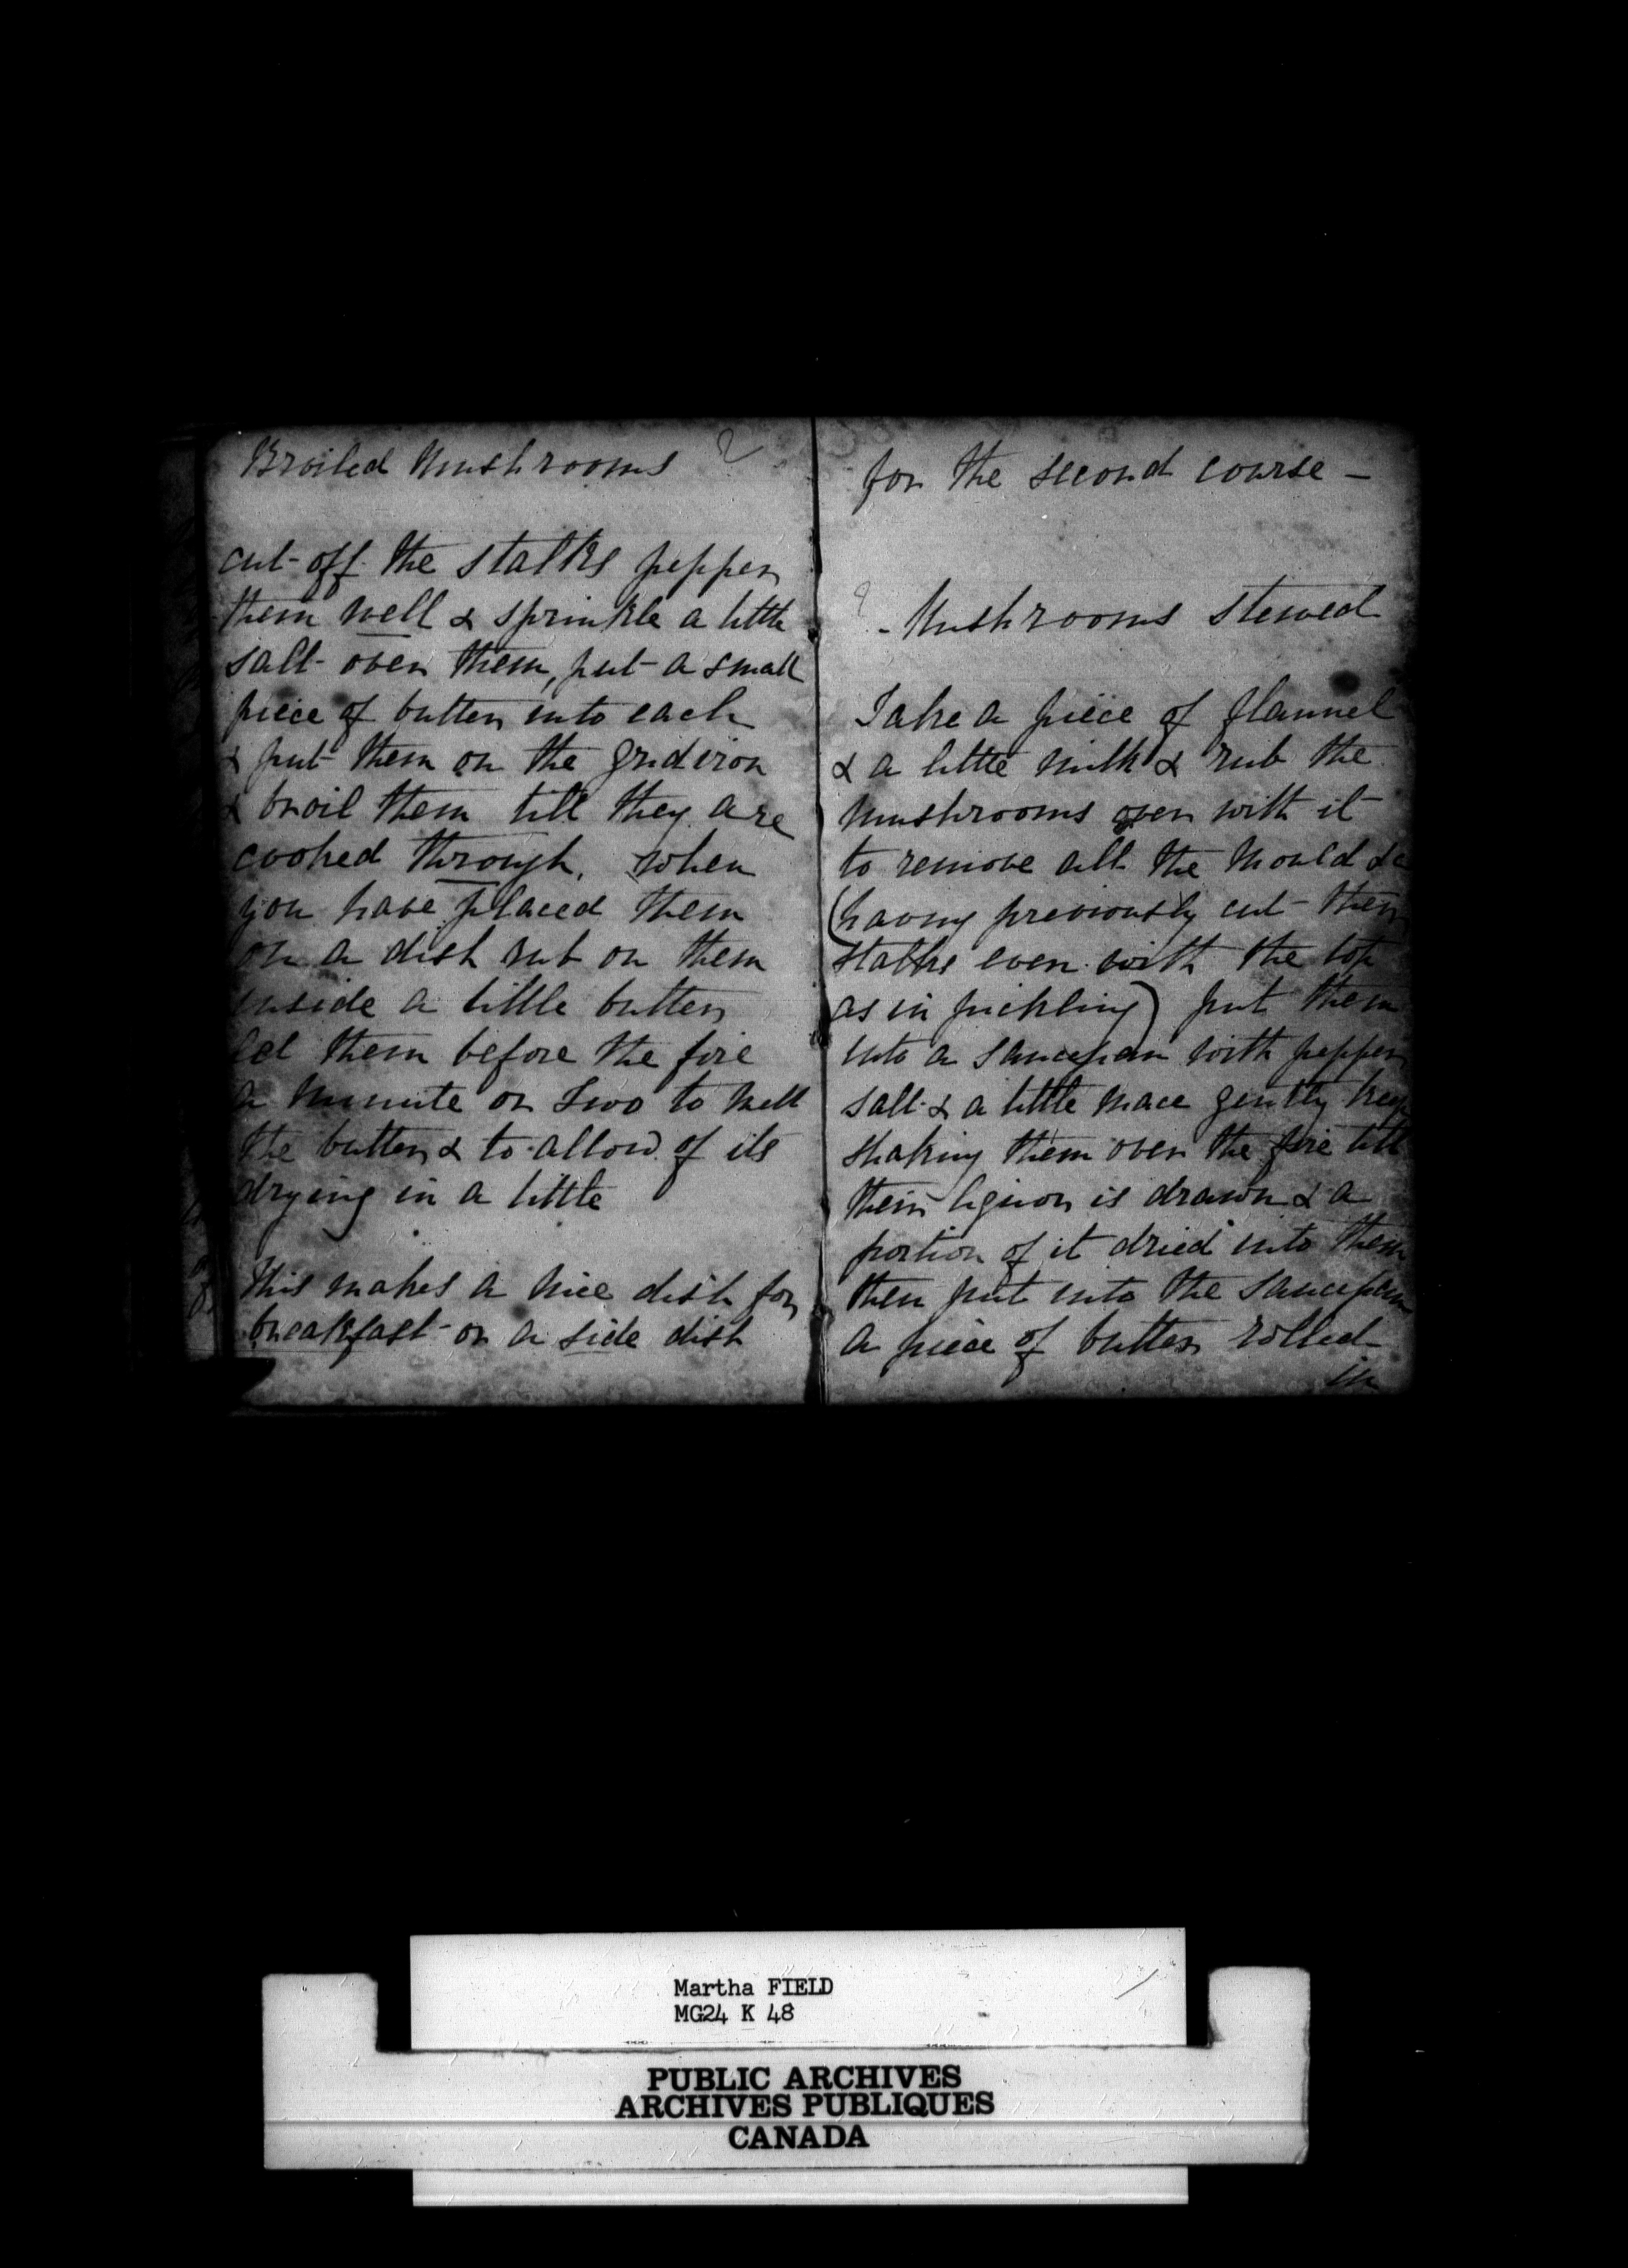 Broiled Mushrooms ?
cut off the stalks pepper
them well & sprinkle a little
salt over them, put a small
piece of butter into each
& put them on the gridiron
& broil them till they are
cooked through. when
you have placed them
on a dish rub on them
inside a little butter
set them before the fire
a minute or two to melt
the butter & to allow of its
drying in a little
This makes a nice dish for
breakfast or a side dish
for the second course -
? - Mushrooms stewed
Take a piece of flannel
& a little milk & rub the
mushrooms over with it
to remove all the mould &c
(having previously cut their
stalks even with the top
as in pickling) put them
into a saucepan with pepper
salt & a little mace gently keep
shaking them over the fire till
their liquor is drawn & a
portion of it dried into them
then put into the saucepan
a piece of butter rolled
in
Martha FIELD
MG24 K 48
PUBLIC ARCHIVES
ARCHIVES PUBLIQUES
CANADA